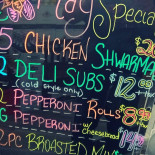 ay Special
5 CHICKEN SHWARMA
2 DELI SUBS $12.99
(cold style only)
2 PEPPERONI ROLLS $8.99
6 PEPPERONI w/cheesebread
2PC BROASTED